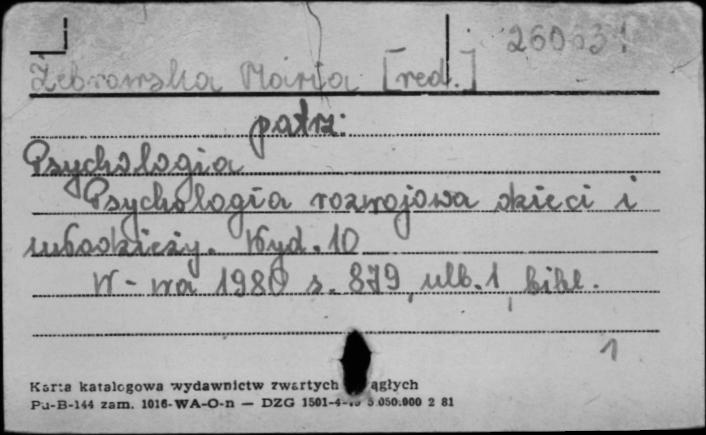 Żebrowska Maria [red.]
patrz:
Psychologia
Psychologia rozwojowa dzieci i
młodzieży. Wyd. 10
W-wa 1980 s. 879, nlb. 1, bibl.
1
Karta katalogowa wydawnictw zwartych ągłych
Pu-B-144 zam. 1016-WA-O-n — DZG 1501-4- 5.050.000 2 81